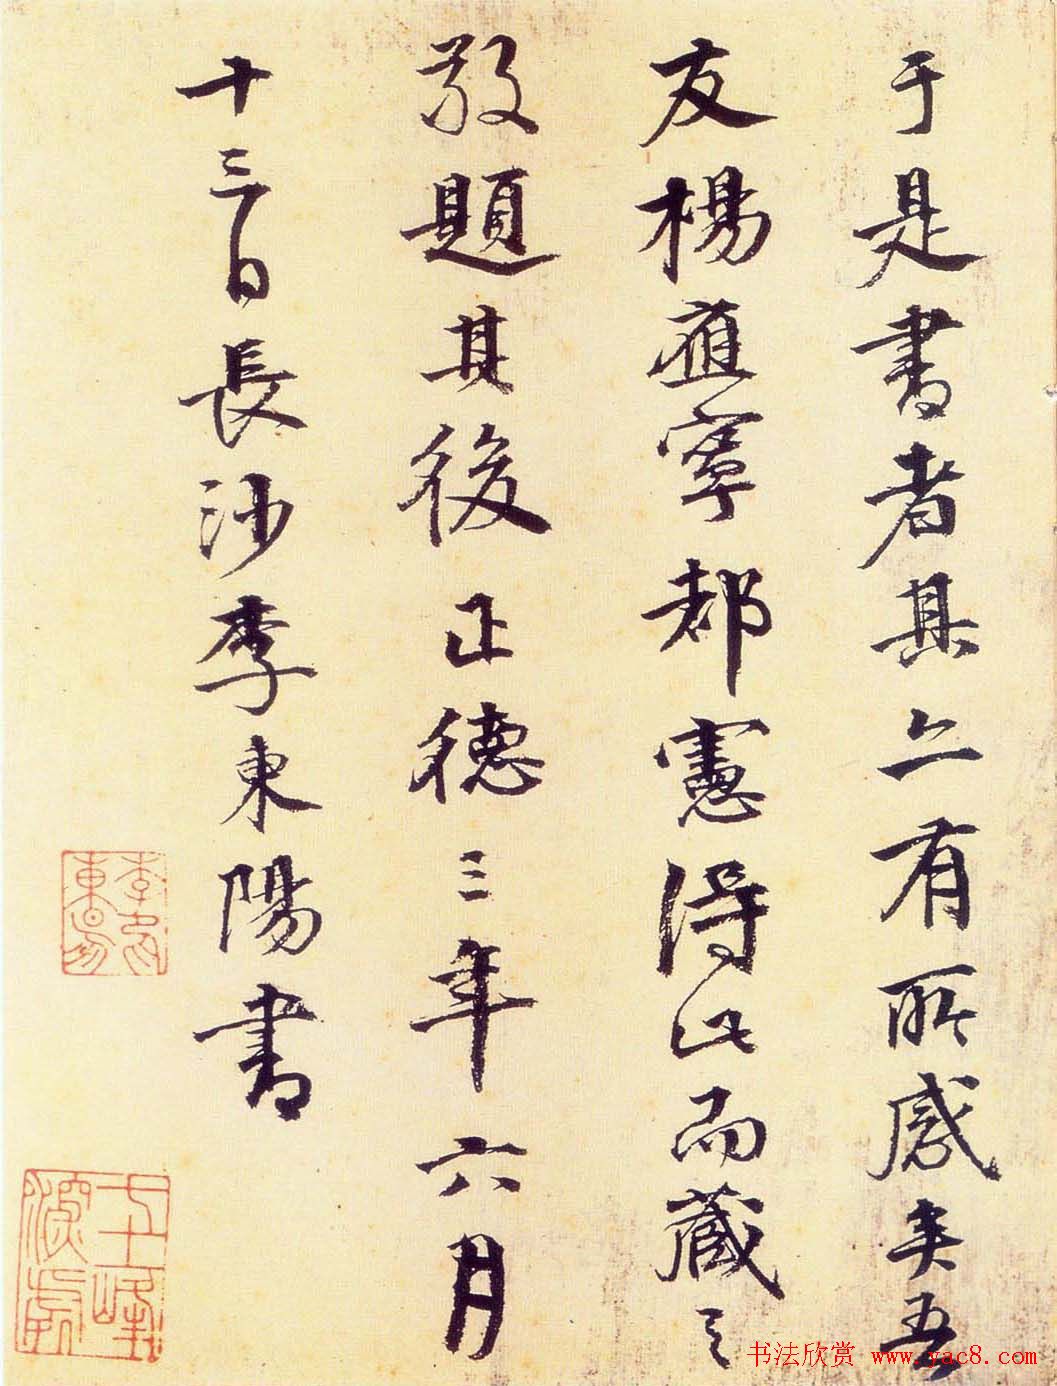 于是書者其亦有所感矣吾
友楊應寧都憲得此而藏之
敬題其後正德三年六月
十三日長沙李東陽書
七十二峰深處
书法欣赏 www.yac8.com